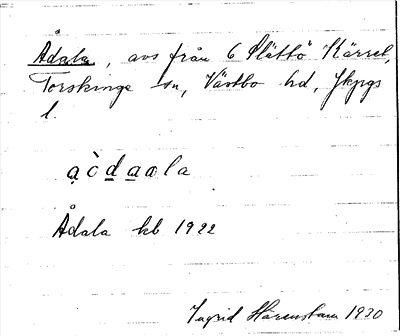 Ådala, avs från 6 Slättö Kärret,
Torskinge sn, Västbo hd, Jkpgs
l.
a ò d a a l a
Ådala kb 1922
Ingrid Härenstam 1930